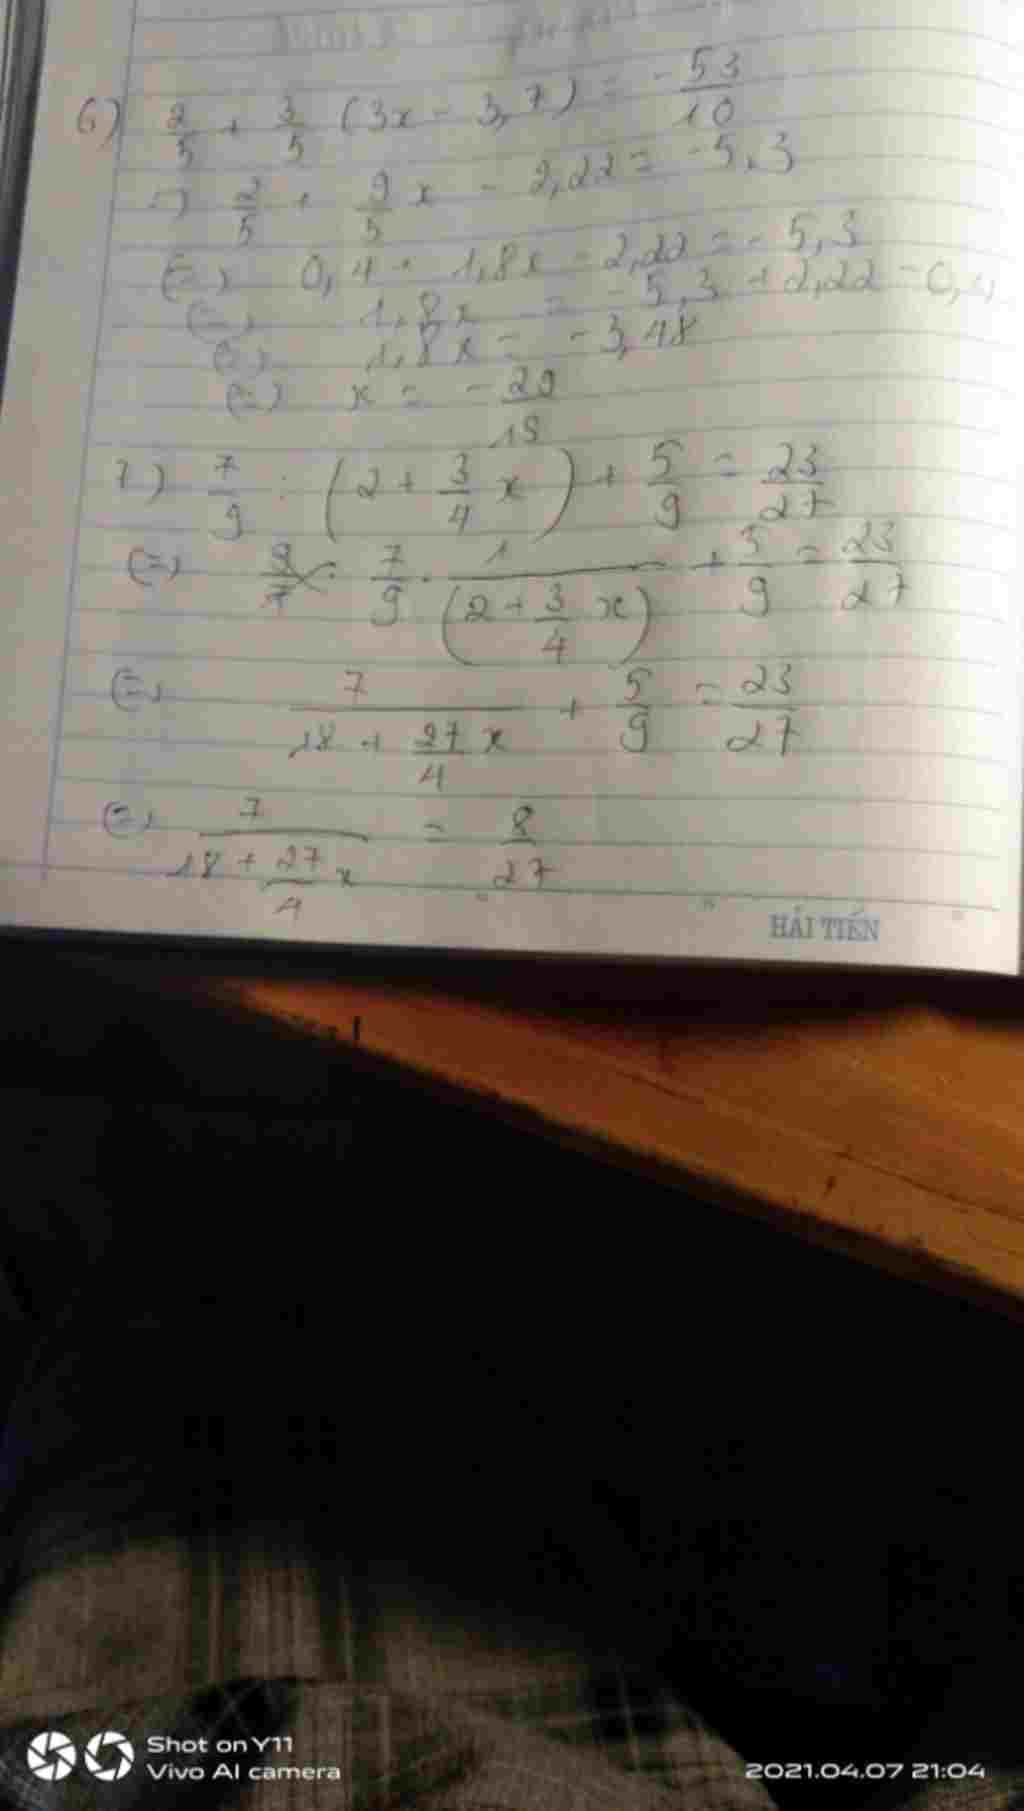 6) 2/5 + 3/5 (3x - 3,7) = -53/10
=> 2/5 + 9/5 x - 2,22 = -5,3
(=) 0,4 + 1,8x - 2,22 = -5,3
(=) 1,8x = -5,3 + 2,22 - 0,4
(=) 1,8x = -3,48
(=) x = -29/15
7) 7/9 : (2 + 3/4 x) + 5/9 = 23/27
(=) 7/9 . 1/(2 + 3/4 x) + 5/9 = 23/27
(=) 7/(18 + 27/4 x) + 5/9 = 23/27
(=) 7/(18 + 27/4 x) = 8/27
HẢI TIẾN
Shot on Y11
Vivo AI camera
2021.04.07 21:04